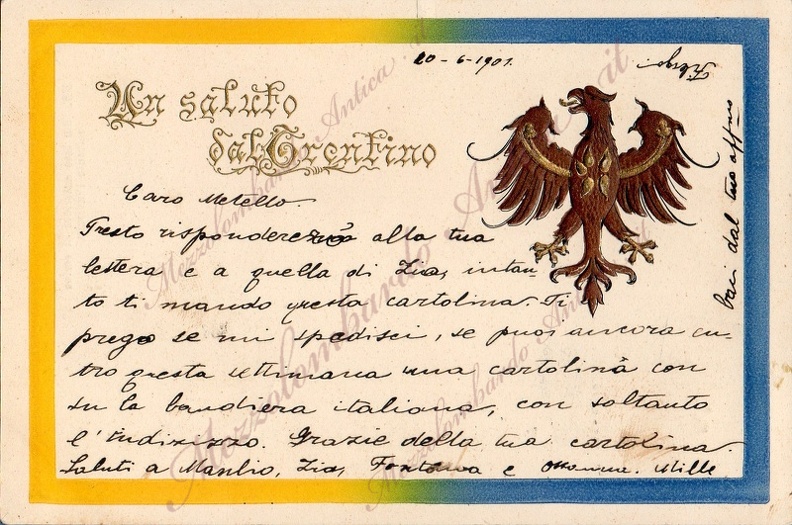 20-6-1901.
Un saluto
dal Trentino
Caro Metello
Presto risponderezò alla tua
lettera e a quella di Zia, intan-
to ti mando questa cartolina. Ti
prego se mi spedisci, se puoi ancora en-
tro questa settimana una cartolina con
su la bandiera italiana, con soltanto
l'indirizzo. Grazie della tua cartolina.
Saluti a Manlio, Zia, e Mille
baci dal tuo affmo
Mezzolombardo Antica .it
Mezzolombardo Antica .it
Mezzolombardo Antica .it